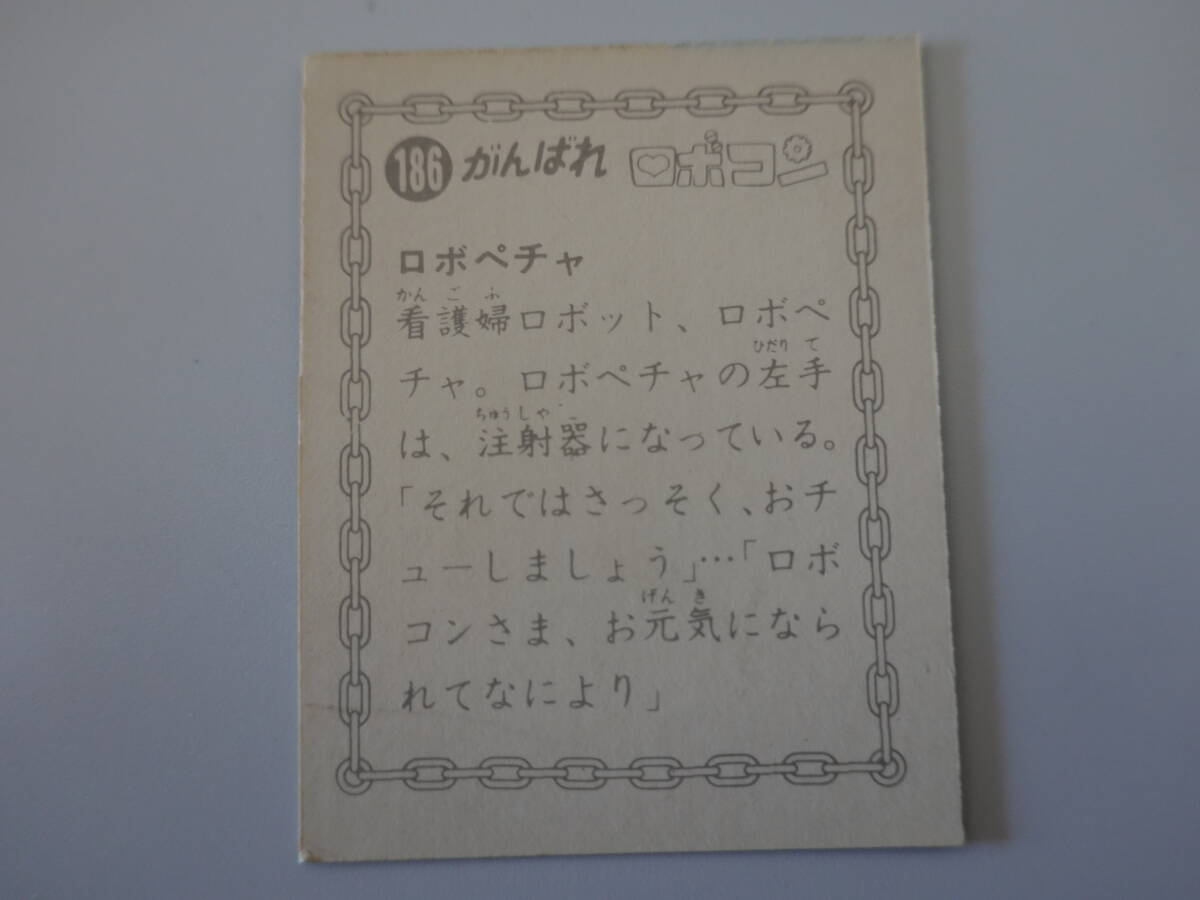 186 がんばれ ロボコン
ロボペチャ
かん ご ふ
看護婦ロボット、ロボペ
ひだり て
チャ。ロボペチャの左手
ちゅうしゃ
は、注射器になっている。
「それではさっそく、おチ
ューしましょう」…「ロボ
げん き
コンさま、お元気になら
れてなにより」